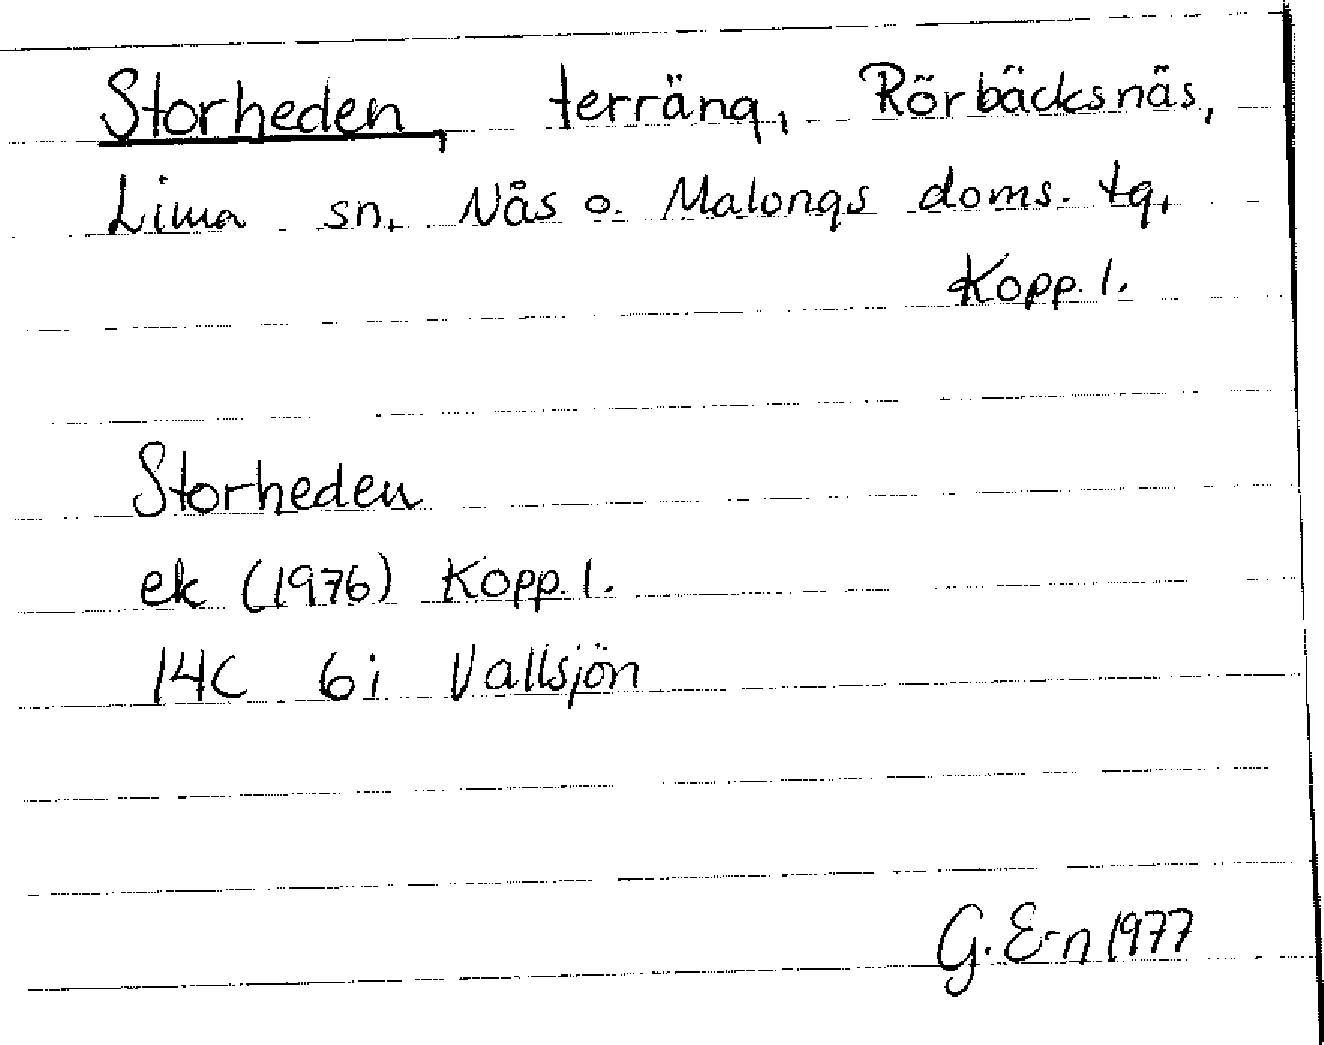 Storheden, terräng, Rörbäcksnäs,
Lima sn, Nås o. Malungs doms. tg,
Kopp. l.
Storheden
ek (1976) Kopp. l.
14C 6i Vallsjön
G. E-n 1977